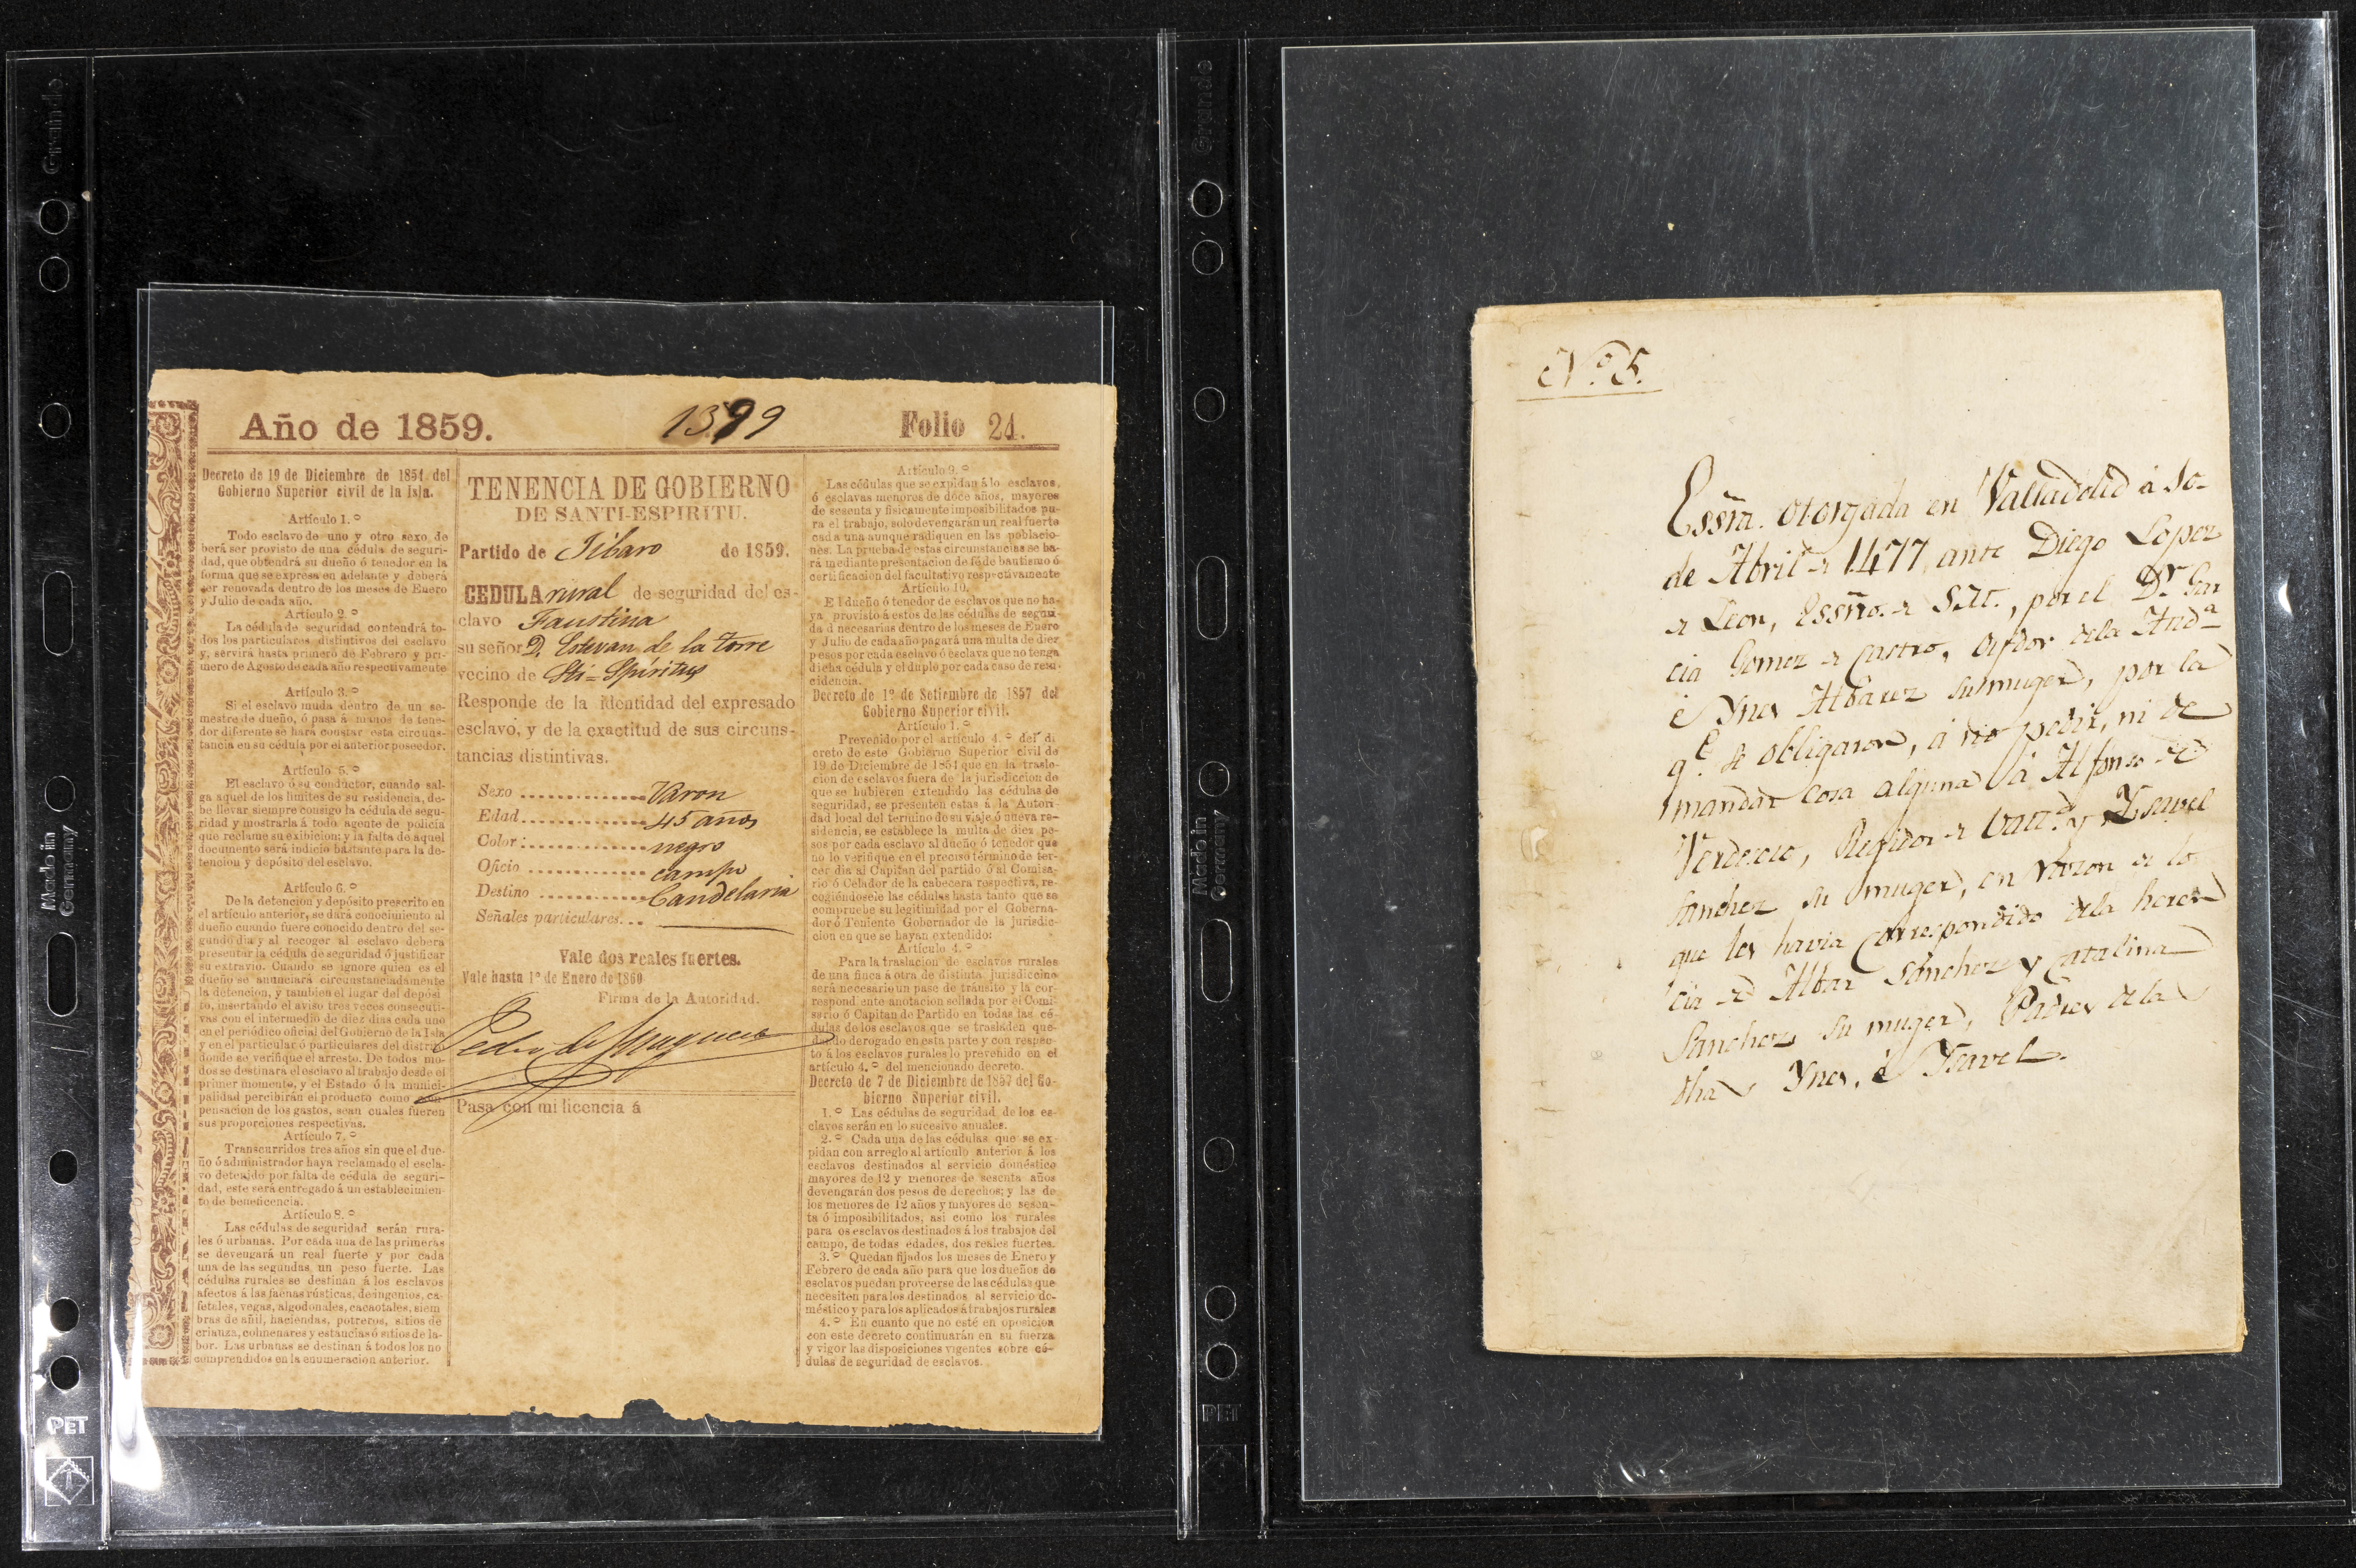 Año de 1859.
1399
Folio 24.
Decreto de 19 de Diciembre de 1854 del
Gobierno Superior civil de la Isla.
Artículo 1.º
Todo esclavo de uno y otro sexo de
berá ser provisto de una cédula de seguri-
dad, que obtendrá su dueño ó tenedor en la
forma que se expresa en adelante y deberá
ser renovada dentro de los meses de Enero
y Julio de cada año.
Artículo 2.º
La cédula de seguridad contendrá to-
dos los particulares distintivos del esclavo
y, servirá hasta primero de Febrero y pri-
mero de Agosto de cada año respectivamente
Artículo 3.º
Si el esclavo muda dentro de un se-
mestre de dueño, ó pasa á manos de tene-
dor diferente se hará constar esta circuns-
tancia en su cédula por el anterior poseedor.
Artículo 5.º
El esclavo ó su conductor, cuando sal-
ga aquel de los limites de su residencia, de-
be llevar siempre consigo la cédula de segu-
ridad y mostrarla á todo agente de policía
que reclame su exibicion; y la falta de aquel
documento será indicio bastante para la de-
tencion y depósito del esclavo.
Artículo 6.º
De la detencion y depósito prescrito en
el artículo anterior, se dará conocimiento al
dueño cuando fuere conocido dentro del se-
gundo dia y al recoger al esclavo debera
presentar la cédula de seguridad ó justificar
su extravio. Cuando se ignore quien es el
dueño se anunciará circunstanciadamente
la detencion, y tambien el lugar del deposi
to, insertando el aviso tres veces consecuti-
vas con el intermedio de diez dias cada uno
en el periódico oficial del Gobierno de la Isla
y en el particular ó particulares del distrito
donde se verifique el arresto. De todos mo-
dos se destinará el esclavo al trabajo desde el
primer momento, y el Estado ó la munici-
palidad percibirán el producto como
pensacion de los gastos, sean cuales fueren
sus proporciones respectivas.
Artículo 7.º
Transcurridos tres años sin que el due-
ño ó administrador haya reclamado el escla-
vo detenido por falta de cédula de seguri-
dad, este será entregado á un establecimien-
to de beneficencia.
Artículo 8.º
Las cédulas de seguridad serán rura-
les ó urbanas. Por cada una de las primeras
se devengará un real fuerte y por cada
una de las segundas un peso fuerte. Las
cédulas rurales se destinan á los esclavos
afectos á las faenas rústicas, de ingenios, ca-
fetales, vegas, algodonales, cacaotales, siem
bras de añil, haciendas, potreros, sitios de
crianza, colmenares y estancias ó sitios de la-
bor. Las urbanas se destinan á todos los no
comprendidos en la enumeracion anterior.
TENENCIA DE GOBIERNO
DE SANTI-ESPIRITU.
Partido de Jíbaro de 1859.
CEDULA rural de seguridad del es-
clavo Faustina
su señor D. Estevan de la torre
vecino de Sti-Spiritus
Responde de la identidad del expresado
esclavo, y de la exactitud de sus circuns-
tancias distintivas.
Sexo Varon
Edad 45 años
Color: negro
Oficio campo
Destino Candelaria
Señales particulares...
Vale dos reales fuertes.
Vale hasta 1º de Enero de 1860
Firma de la Autoridad.
Pedro de
Pasa con mi licencia á
Artículo 9.º
Las cédulas que se expidan á lo esclavos,
ó esclavas menores de doce años, mayores
de sesenta y fisicamente imposibilitados pa-
ra el trabajo, solo devengarán un real fuerte
cada una aunque radiquen en las poblacio-
nes. La prueba de estas circunstancias se ha-
rá mediante presentacion de fé de bautismo ó
certificacion del facultativo respectivamente
Artículo 10.
El dueño ó tenedor de esclavos que no ha-
ya provisto á estos de las cédulas de seguri
dad necesarias dentro de los meses de Enero
y Julio de cada año pagará una multa de diez
pesos por cada esclavo ó esclava que no tenga
dicha cédula y el duplo por cada caso de rein
cidencia.
Decreto de 1º de Setiembre de 1857 del
Gobierno Superior civil.
Artículo 1.º
Prevenido por el artículo 4.º del di
creto de este Gobierno Superior civil de
19 de Diciembre de 1854 que en la trasla-
cion de esclavos fuera de la jurisdiccion de
que se hubieren extendido las cédulas de
seguridad, se presenten estas á la Autori-
dad local del termino de su viaje ó nueva re-
sidencia, se establece la multa de diez pe-
sos por cada esclavo al dueño ó tenedor que
no lo verifique en el preciso término de ter-
cer dia al Capitan del partido ó al Comisa-
rio ó Celador de la cabecera respectiva, re-
cogiéndosele las cédulas hasta tanto que se
compruebe su legitimidad por el Goberna-
dor ó Teniente Gobernador de la jurisdic-
cion en que se hayan extendido:
Artículo 4.º
Para la traslacion de esclavos rurales
de una finca á otra de distinta jurisdiccion
será necesario un pase de tránsito y la cor-
respondiente anotacion sellada por el Comi-
sario ó Capitan de Partido en todas las cé-
dulas de los esclavos que se trasladen que-
dando derogado en esta parte y con respec-
to á los esclavos rurales lo prevenido en el
artículo 4.º del mencionado decreto.
Decreto de 7 de Diciembre de 1857 del Go-
bierno Superior civil.
1.º Las cédulas de seguridad de los es-
clavos serán en lo sucesivo anuales.
2.º Cada una de las cédulas que se ex-
pidan con arreglo al artículo anterior á los
esclavos destinados al servicio doméstico
mayores de 12 y menores de sesenta años
devengarán dos pesos de derechos; y las de
los menores de 12 años y mayores de sesen-
ta ó imposibilitados, asi como los rurales
para os esclavos destinados á los trabajos del
campo, de todas edades, dos reales fuertes.
3.º Quedan fijados los meses de Enero y
Febrero de cada año para que los dueños de
esclavos puedan proveerse de las cédulas que
necesiten para los destinados al servicio do-
méstico y para los aplicados á trabajos rurales
4.º En cuanto que no esté en oposicion
con este decreto continuarán en su fuerza
y vigor las disposiciones vigentes sobre cé-
dulas de seguridad de esclavos.
Nº 5.
Essra. otorgada en Valladolid á 10
de Abril de 1477 ante Diego Lopez
de Leon, Essno. de S.M., por el Dr. Gar
cia Gomez de Castro, Oydor dela Auda
é Ynes Albarez su muger, por la
qe. se obligaron, á no pedir, ni de
mandar cosa alguna á Alfonso de
Verdesoto, Regidor de Valld. y Isavel
Sanchez su muger, en razon de lo
que les havia correspondido dela heren
cia de Albar Sanchez y Catalina
Sanchez su muger, Padres dela
dha Ynes, é Isavel.
Grande
Made in
Germany
PET
Grande
Made in
Germany
PET